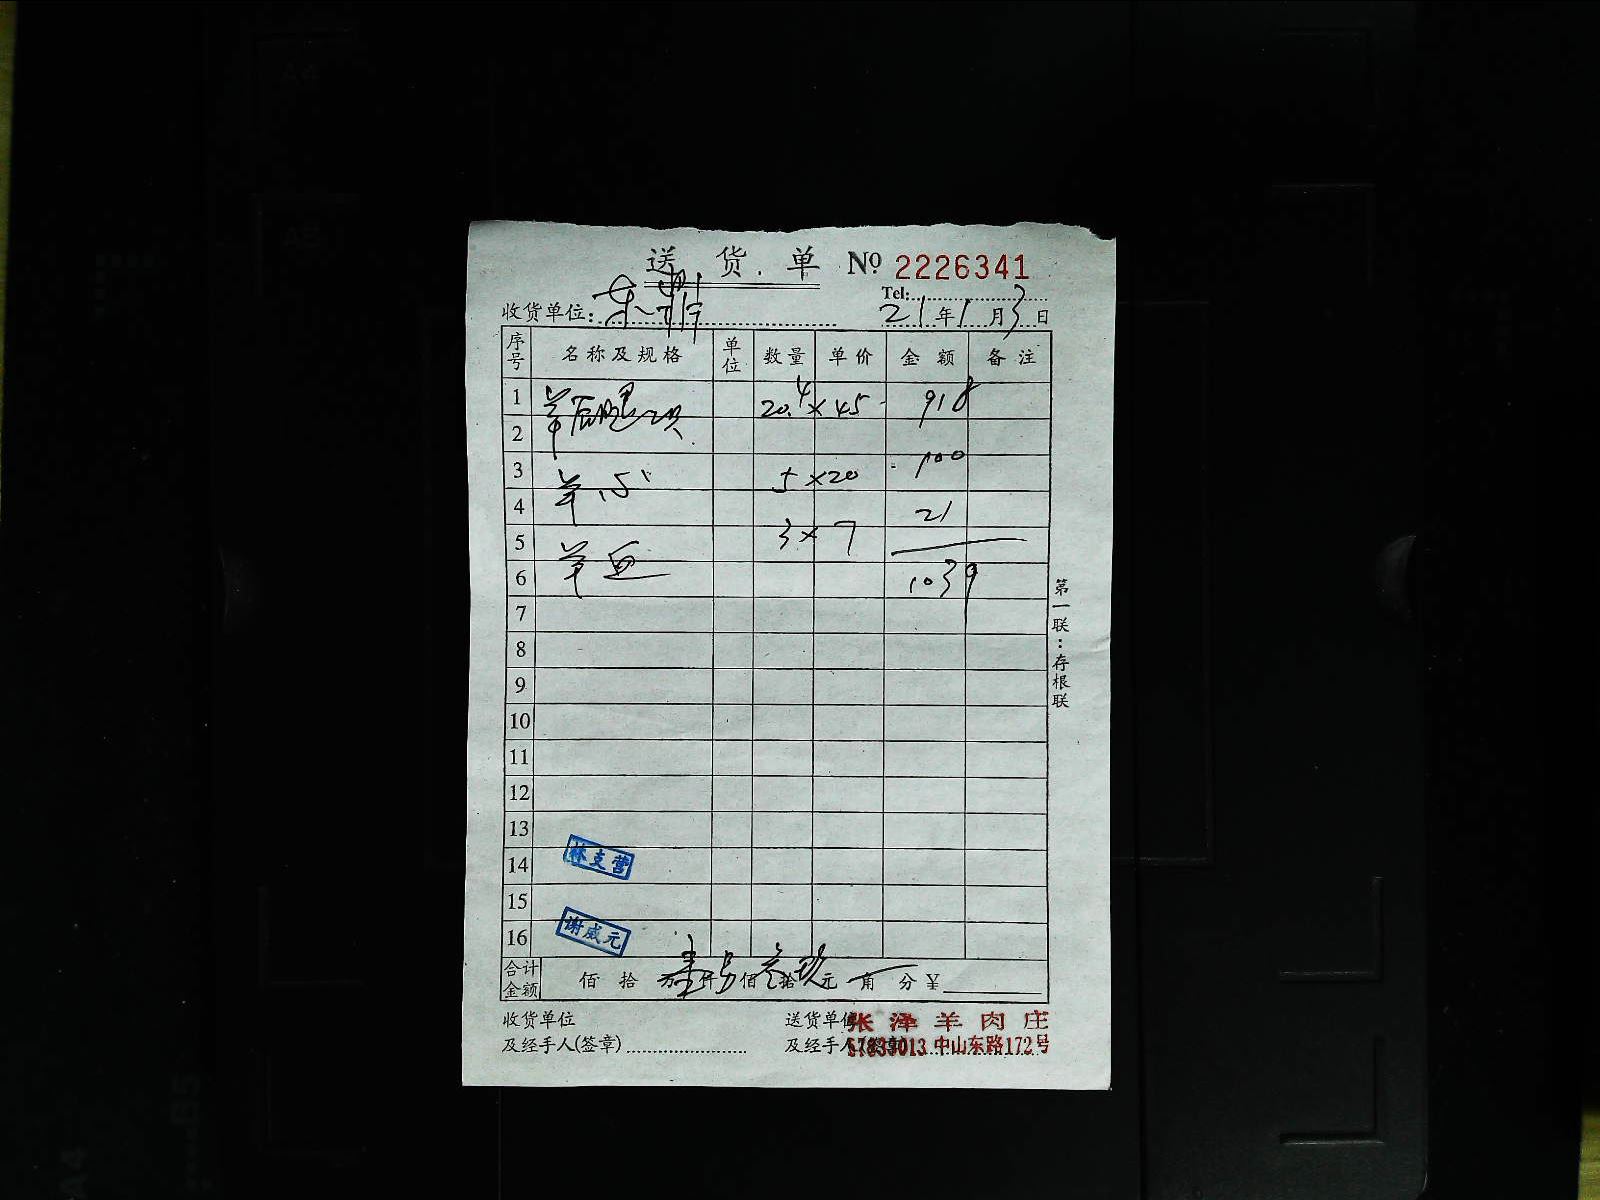 送货单 № 2226341
Tel:
收货单位: 21年1月3日
序号 名称及规格 单位 数量 单价 金额 备注
1 羊后腿 20.4×45 918
2
3 羊心 5×20 100
4 21
5 羊血 3×7
6 1039
7
8
9
10
11
12
13
14 林支营
15
16 谢威元
合计金额 佰 拾 万 壹仟 另佰 叁拾 玖元 角 分 ¥
收货单位 送货单位 张泽羊肉庄
及经手人(签章) 及经手人 57839013 中山东路172号
第一联:存根联